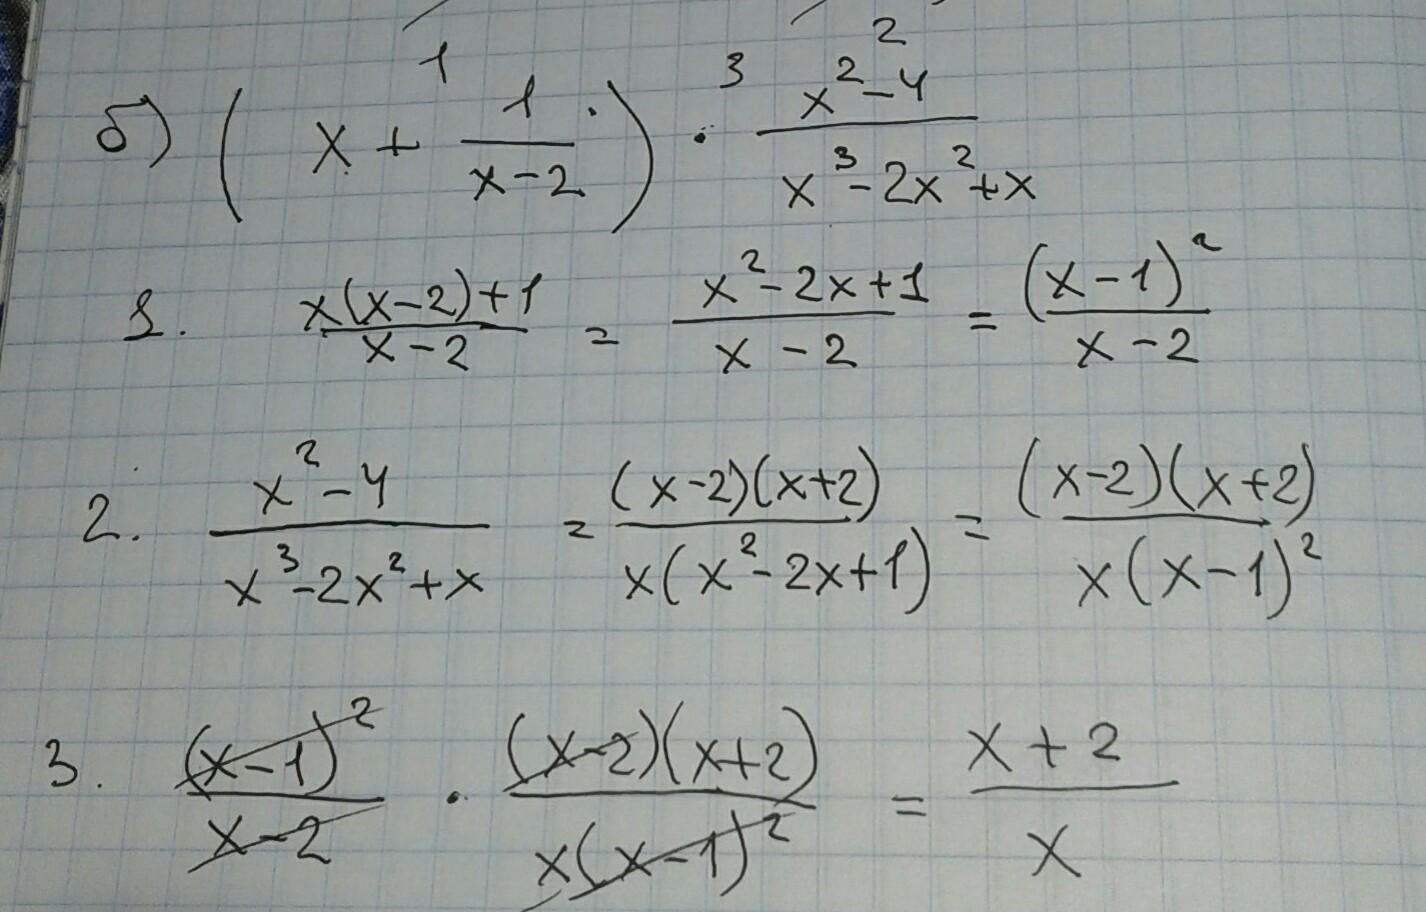 1 3 2
б) ( x + 1/(x-2) ) · (x²-4)/(x³-2x²+x)
1. (x(x-2)+1)/(x-2) = (x²-2x+1)/(x-2) = (x-1)²/(x-2)
2. (x²-4)/(x³-2x²+x) = ((x-2)(x+2))/(x(x²-2x+1)) = ((x-2)(x+2))/(x(x-1)²)
3. (x-1)²/(x-2) · ((x-2)(x+2))/(x(x-1)²) = (x+2)/x